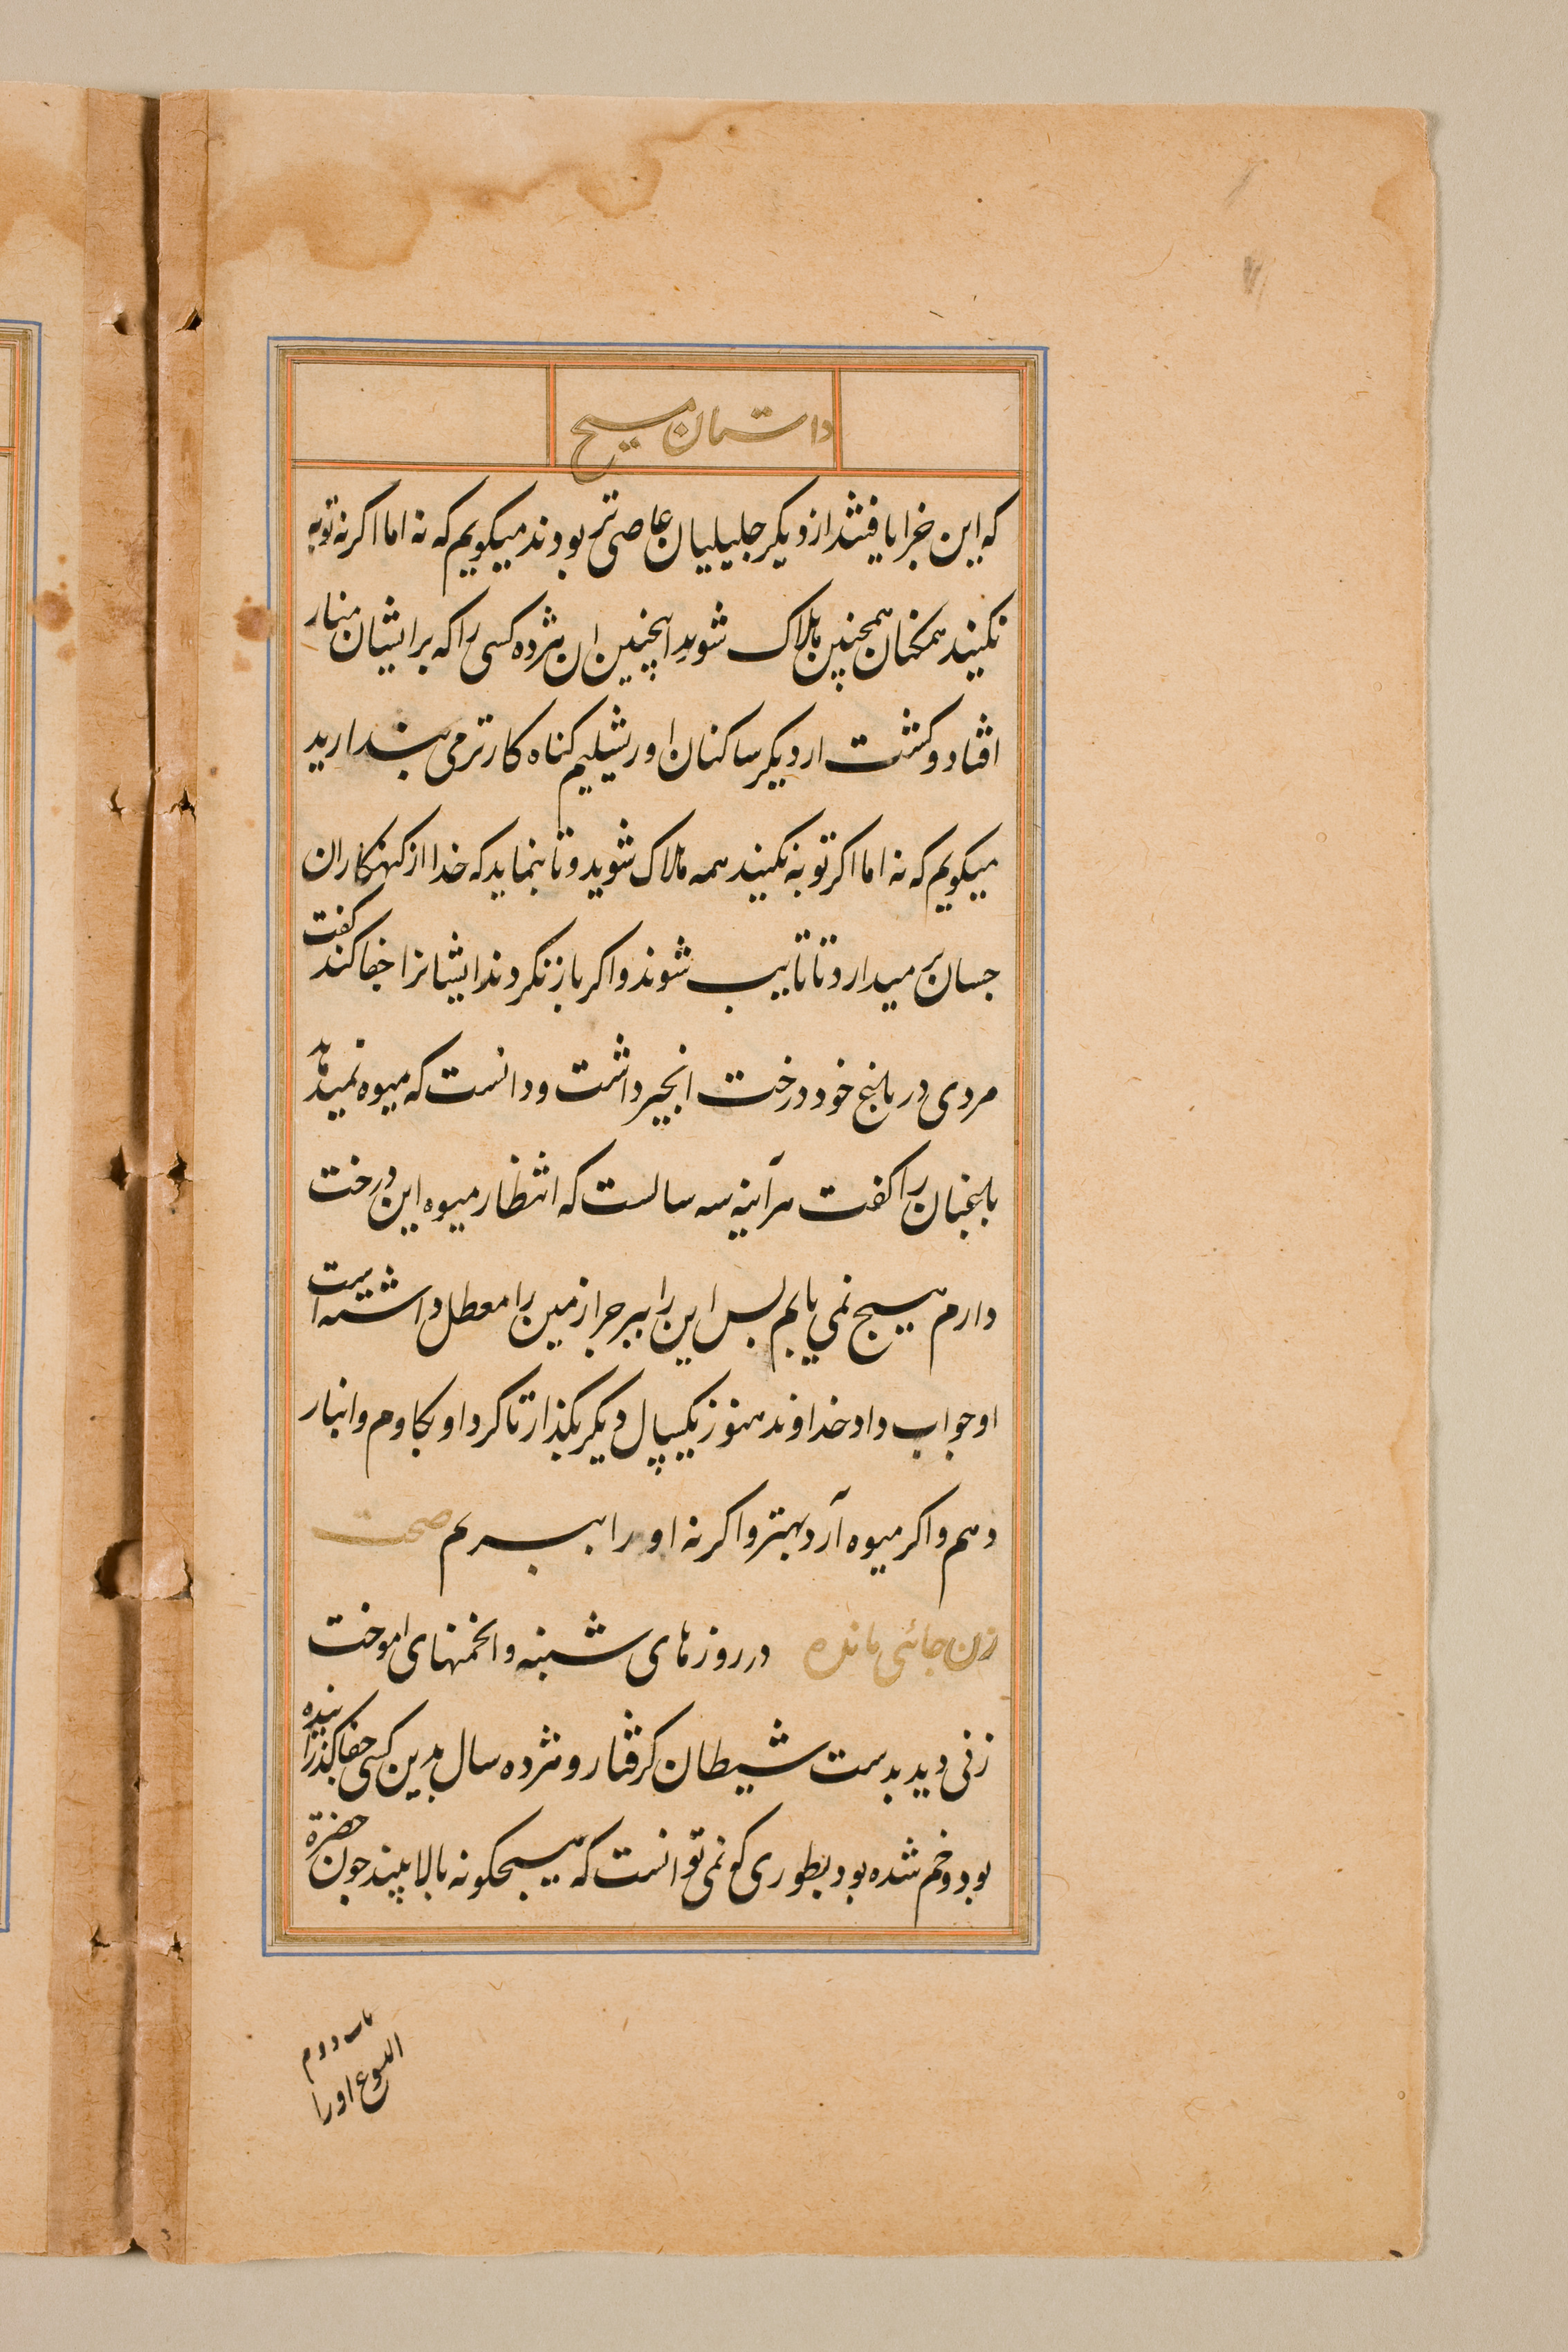 داستان مسیح
که این جزا یافتند از دیکر جلیلیان عاصی تر بودند میکویم که نه اما اکر نه توبه
نکنید همکنان همچنین هلاک شوید همچنین ان هژده کسی را که بر ایشان منار
افتاد و کشت از دیکر ساکنان اورشلیم کناه کارتر می پندارید
میکویم که نه اما اکر توبه نکنید همه هلاک شوید و تا بنماید که خدا از کنهکاران
جسان بر میدارد تا تایب شوند و اکر باز نکردند ایشانرا جفا کند کفت
مردی در باغ خود درخت انجیر داشت و دانست که میوه نمیدهد
باغبان را کفت هرآینه سه سالست که انتظار میوه این درخت
دارم هیچ نمی یابم پس این را ببر جرا زمین را معطل داشته است
او جواب داد خداوند هنوز یکسال دیکر بکذار تا کرد او بکاوم و انبار
دهم و اکر میوه آرد بهتر و اکر نه او را ببریم صحت
زن جائی مانده در روزهای شنبه و انجمنهای اموخت
زنی دید بدست شیطان کرفتار و هژده سال بدین کسی جفا کذرانیده
بود و خم شده بود بطوری کو نمی توانست که هیچکونه بالا بیند جون حضرة
باب دوم
ایسوع اورا